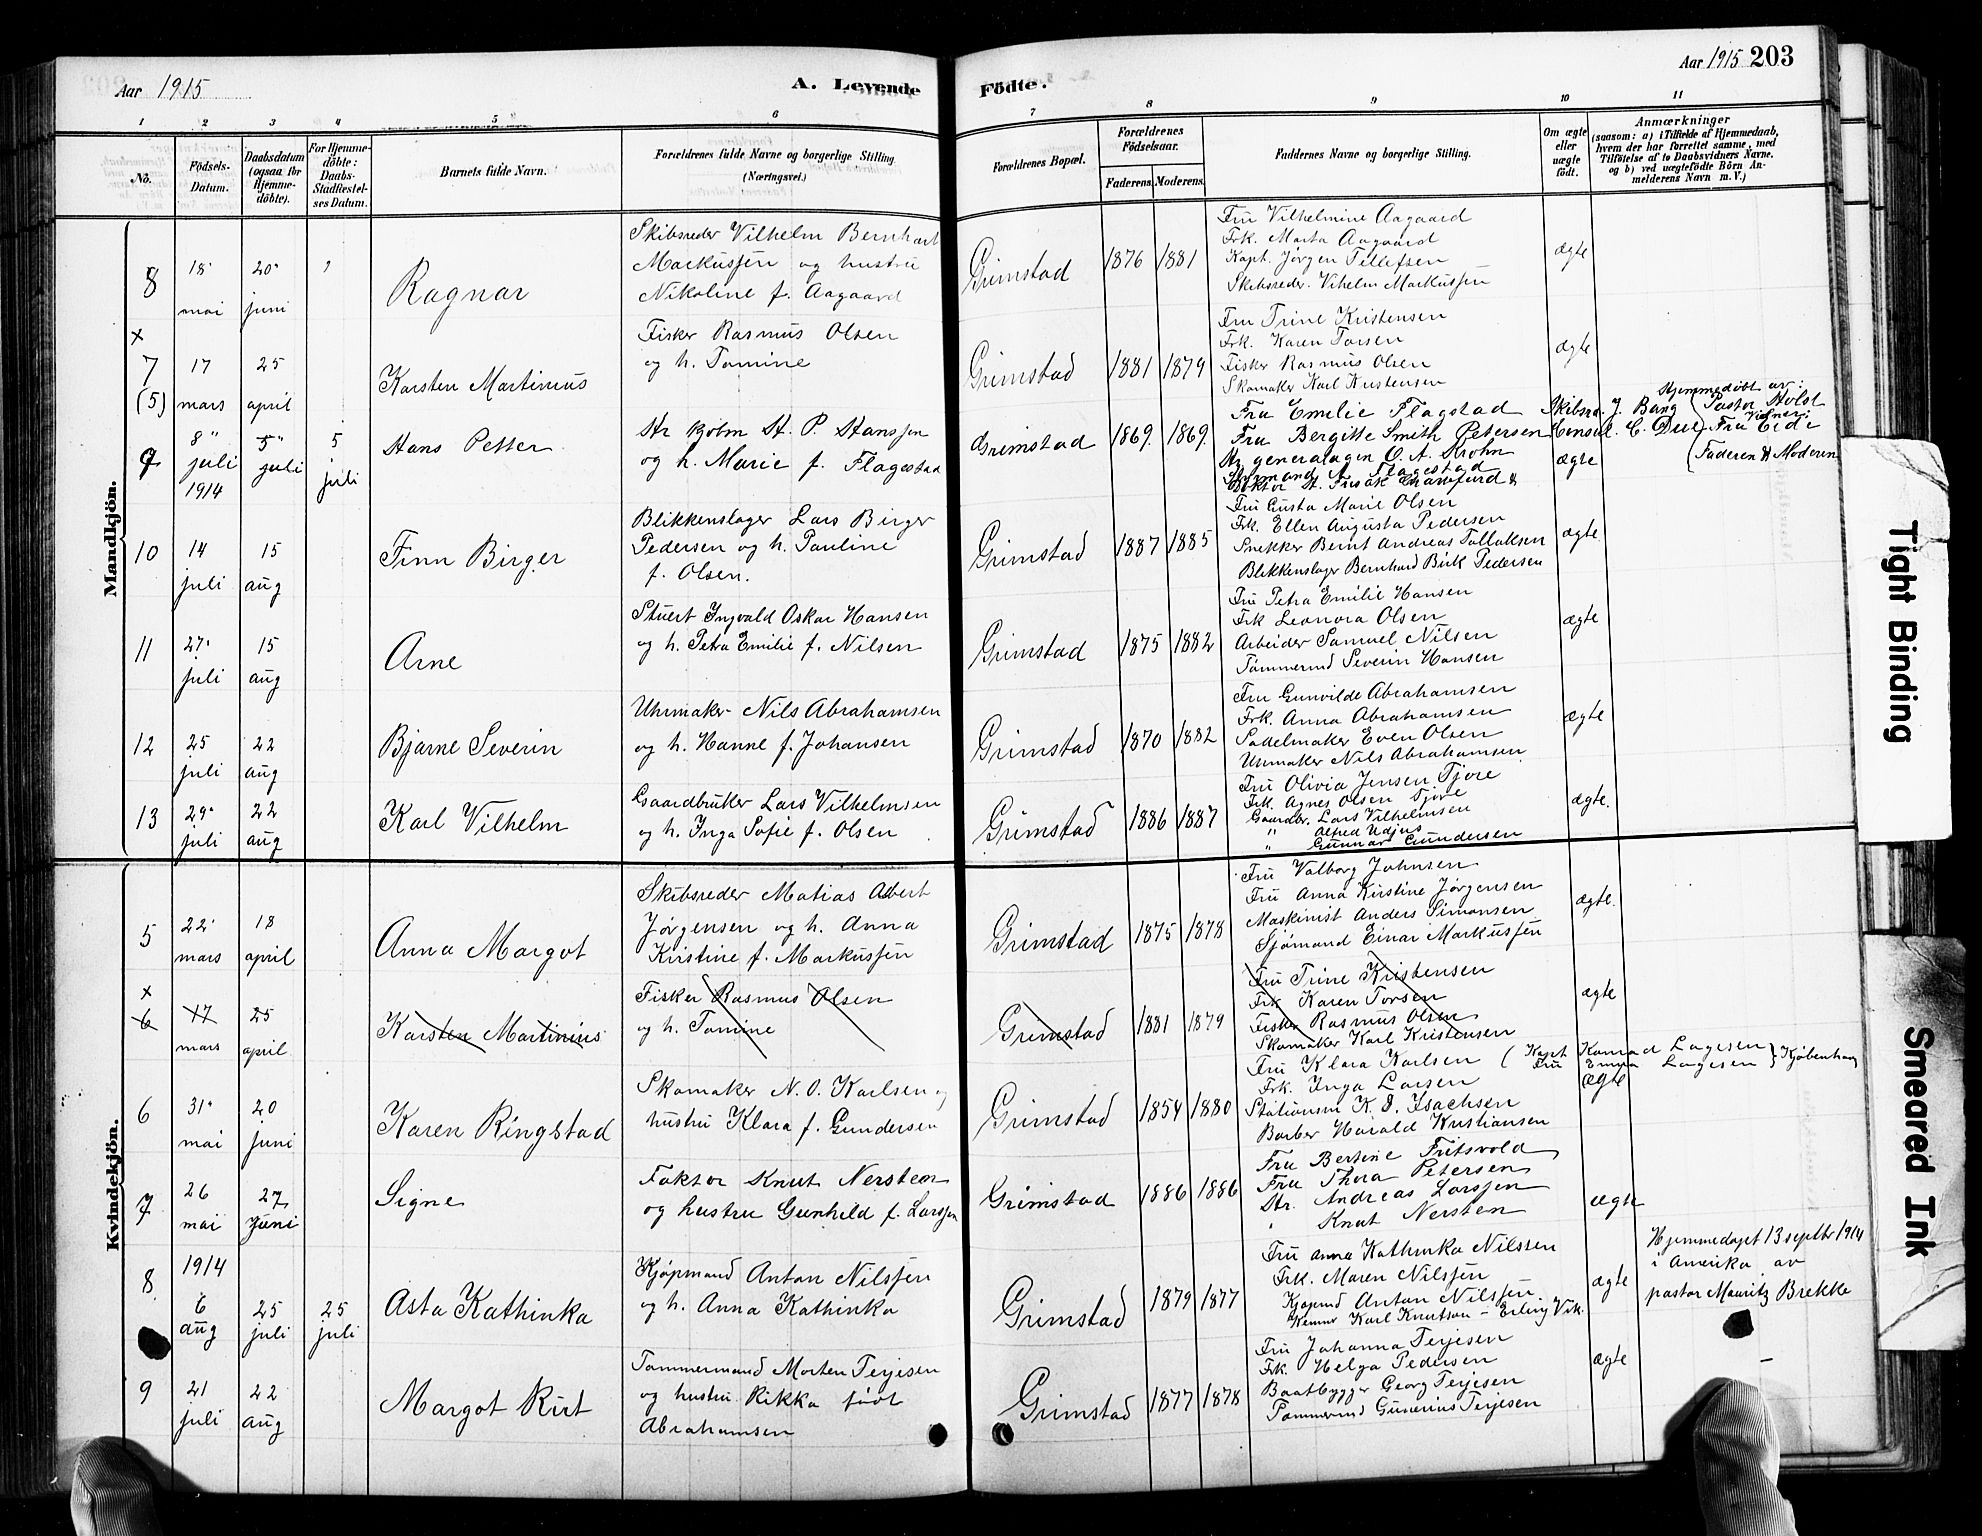 Aar 1915
A. Levende
Födte.
Aar 1915 203
1 2 3 4 5 6 7 8 9 10 11
No.
Födsels-
Datum.
Daabsdatum
(ogsaa for
Hjemme-
döbte).
For Hjemme-
döbte:
Daabs-
Stadfæstel-
ses Datum.
Barnets fulde Navn.
Forældrenes fulde Navne og borgerlige Stilling.
(Næringsvei.)
Forældrenes Bopæl.
Forældrenes
Födselsaar.
Faderens. Moderens.
Faddernes Navne og borgerlige Stilling.
Om ægte
eller
uægte
födt.
Anmærkninger
(saasom: a) i Tilfælde af Hjemmedaab,
hvem der har forrettet samme, med
Tilföielse af to Daabsvidners Navne,
og b) ved uægtefödte Börn An-
melderens Navn m. V.)
Mandkjön.
8
18
mai
20
juni
Ragnar
Skibsreder Vilhelm Bernhart
Markussen og hustru
Nikoline f. Aagaard
Grimstad 1876 1881
Fru Vilhelmine Aagaard
Frk. Marta Aagaard
Kapt. Jørgen Tellefsen
Skibsreder. Vihelm Markussen
ægte
x
7
(5)
17
mars
25
april
Karsten Martinius
Fisker Rasmus Olsen
og h. Tomine
Grimstad 1881 1879
Fru Trine Kristensen
Frk. Karen Torsen
Fisker Rasmus Olsen
Skomaker Karl Kristensen
ægte
9
8
juli
1914
5
juli
5
juli
Hans Petter
Hr kjøbm H. P. Hanssen
og h. Marie f. Flagestad
Grimstad 1869. 1869
Fru Emilie Flagstad Skibsred. J. Bang
Fru Bergitte Smith Petersen Consul. C. Due
Hr generalagen O. A. Krohn
Styrmand A. Flagestad
Doktor H. Fresak Chawfurd
ægte
Hjemmedöbt av:
Pastor Holst
Vidner:
Fru Eide
Faderen & Moderen
10
14
juli
15
aug
Finn Birger
Blikkenslager Lars Birger
Pedersen og h. Pauline
f. Olsen.
Grimstad 1887 1885
Fru Gusta Marie Olsen
Frk. Ellen Augusta Pedersen
Snekker Bernt Andreas Tallaksen
Blikkenslager Bernhard Birk Pedersen
ægte
11
27
juli
15
aug
Arne
Stuert Ingvald Oskar Hansen
og h. Petra Emilie f. Nilsen
Grimstad 1875 1882
Fru Petra Emilie Hansen
Frk Leonora Olsen
Arbeider Samuel Nilsen
Tømmermd Severin Hansen
ægte
12
25
juli
22
aug
Bjarne Severin
Uhrmaker Nils Abrahamsen
og h. Hanne f. Johansen
Grimstad 1870 1882
Fru Gunvilde Abrahamsen
Frk. Anna Abrahamsen
Sadelmaker Even Olsen
Uhrmaker Nils Abrahamsen
ægte
13
29
juli
22
aug
Karl Vilhelm
Gaardbruker Lars Vilhelmsen
og h. Inga Sofie f. Olsen
Grimstad 1886 1887
Fru Olivia Jensen Fjøre
Frk. Agnes Olsen Fjøre
Gaardbr. Lars Vilhelmsen
" Alfred Udjus
" Gunnar Gundersen
ægte.
Kvindekjön.
5
22
mars
18
april
Anna Margot
Skibsreder Matias Albert
Jørgensen og h. Anna
Kristine f. Markussen
Grimstad 1875 1878
Fru Valborg Johnsen
Fru Anna Kirstine Jørgensen
Maskinist Anders Simonsen
Sjømand Einar Markussen
ægte.
x
6
17
mars
25
april
Karsten Martinius
Fisker Rasmus Olsen
og h. Tomine
Grimstad 1881 1879
Fru Trine Kristensen
Frk Karen Torsen
Fisker Rasmus Olsen
Skomaker Karl Kristensen
ægte
6
31
mai
20
juni
Karen Ringstad
Skomaker N. O. Karlsen og
hustru Klara f. Gundersen
Grimstad 1854 1880
Fru Klara Karlsen ( Kapt Konrad Lagesen } Kjøbenhavn
Fru Emma Lagesen
Frk. Inga Larsen
Stationsm K. O. Isachsen
Barber Harald Kristiansen
ægte
7
26
mai
27
juni
Signe
Faktor Knut Nersten
og hustru Gunhild f. Larssen
Grimstad 1886 1886
Fru Bertine Fritsvold
Fru Thora Petersen
Hr. Andreas Larssen
" Knut Nersten
ægte
8
1914
6
aug
25
juli
25
juli
Asta Kathinka
Kjøpmand Anton Nilssen
og h. Anna Kathinka
Grimstad 1879 1877
Fru Anna Kathinka Nilssen
Frk. Maren Nilssen
Kjøpmd Anton Nilssen
Kemner Karl Knutson - Erling Vik.
ægte
Hjemmedøpt 13 septbr 1914
i Amerika av
pastor Mauritz Brekke
9
21
juli
22
aug
Margot Rut
Tømmermand Morten Terjesen
og hustru Rikka født
Abrahamsen
Grimstad 1877 1878
Fru Johanna Terjesen
Frk. Helga Pedersen
Baatbygger Georg Terjesen
Tømmermd Gunerius Terjesen
ægte
Tight Binding
Smeared Ink